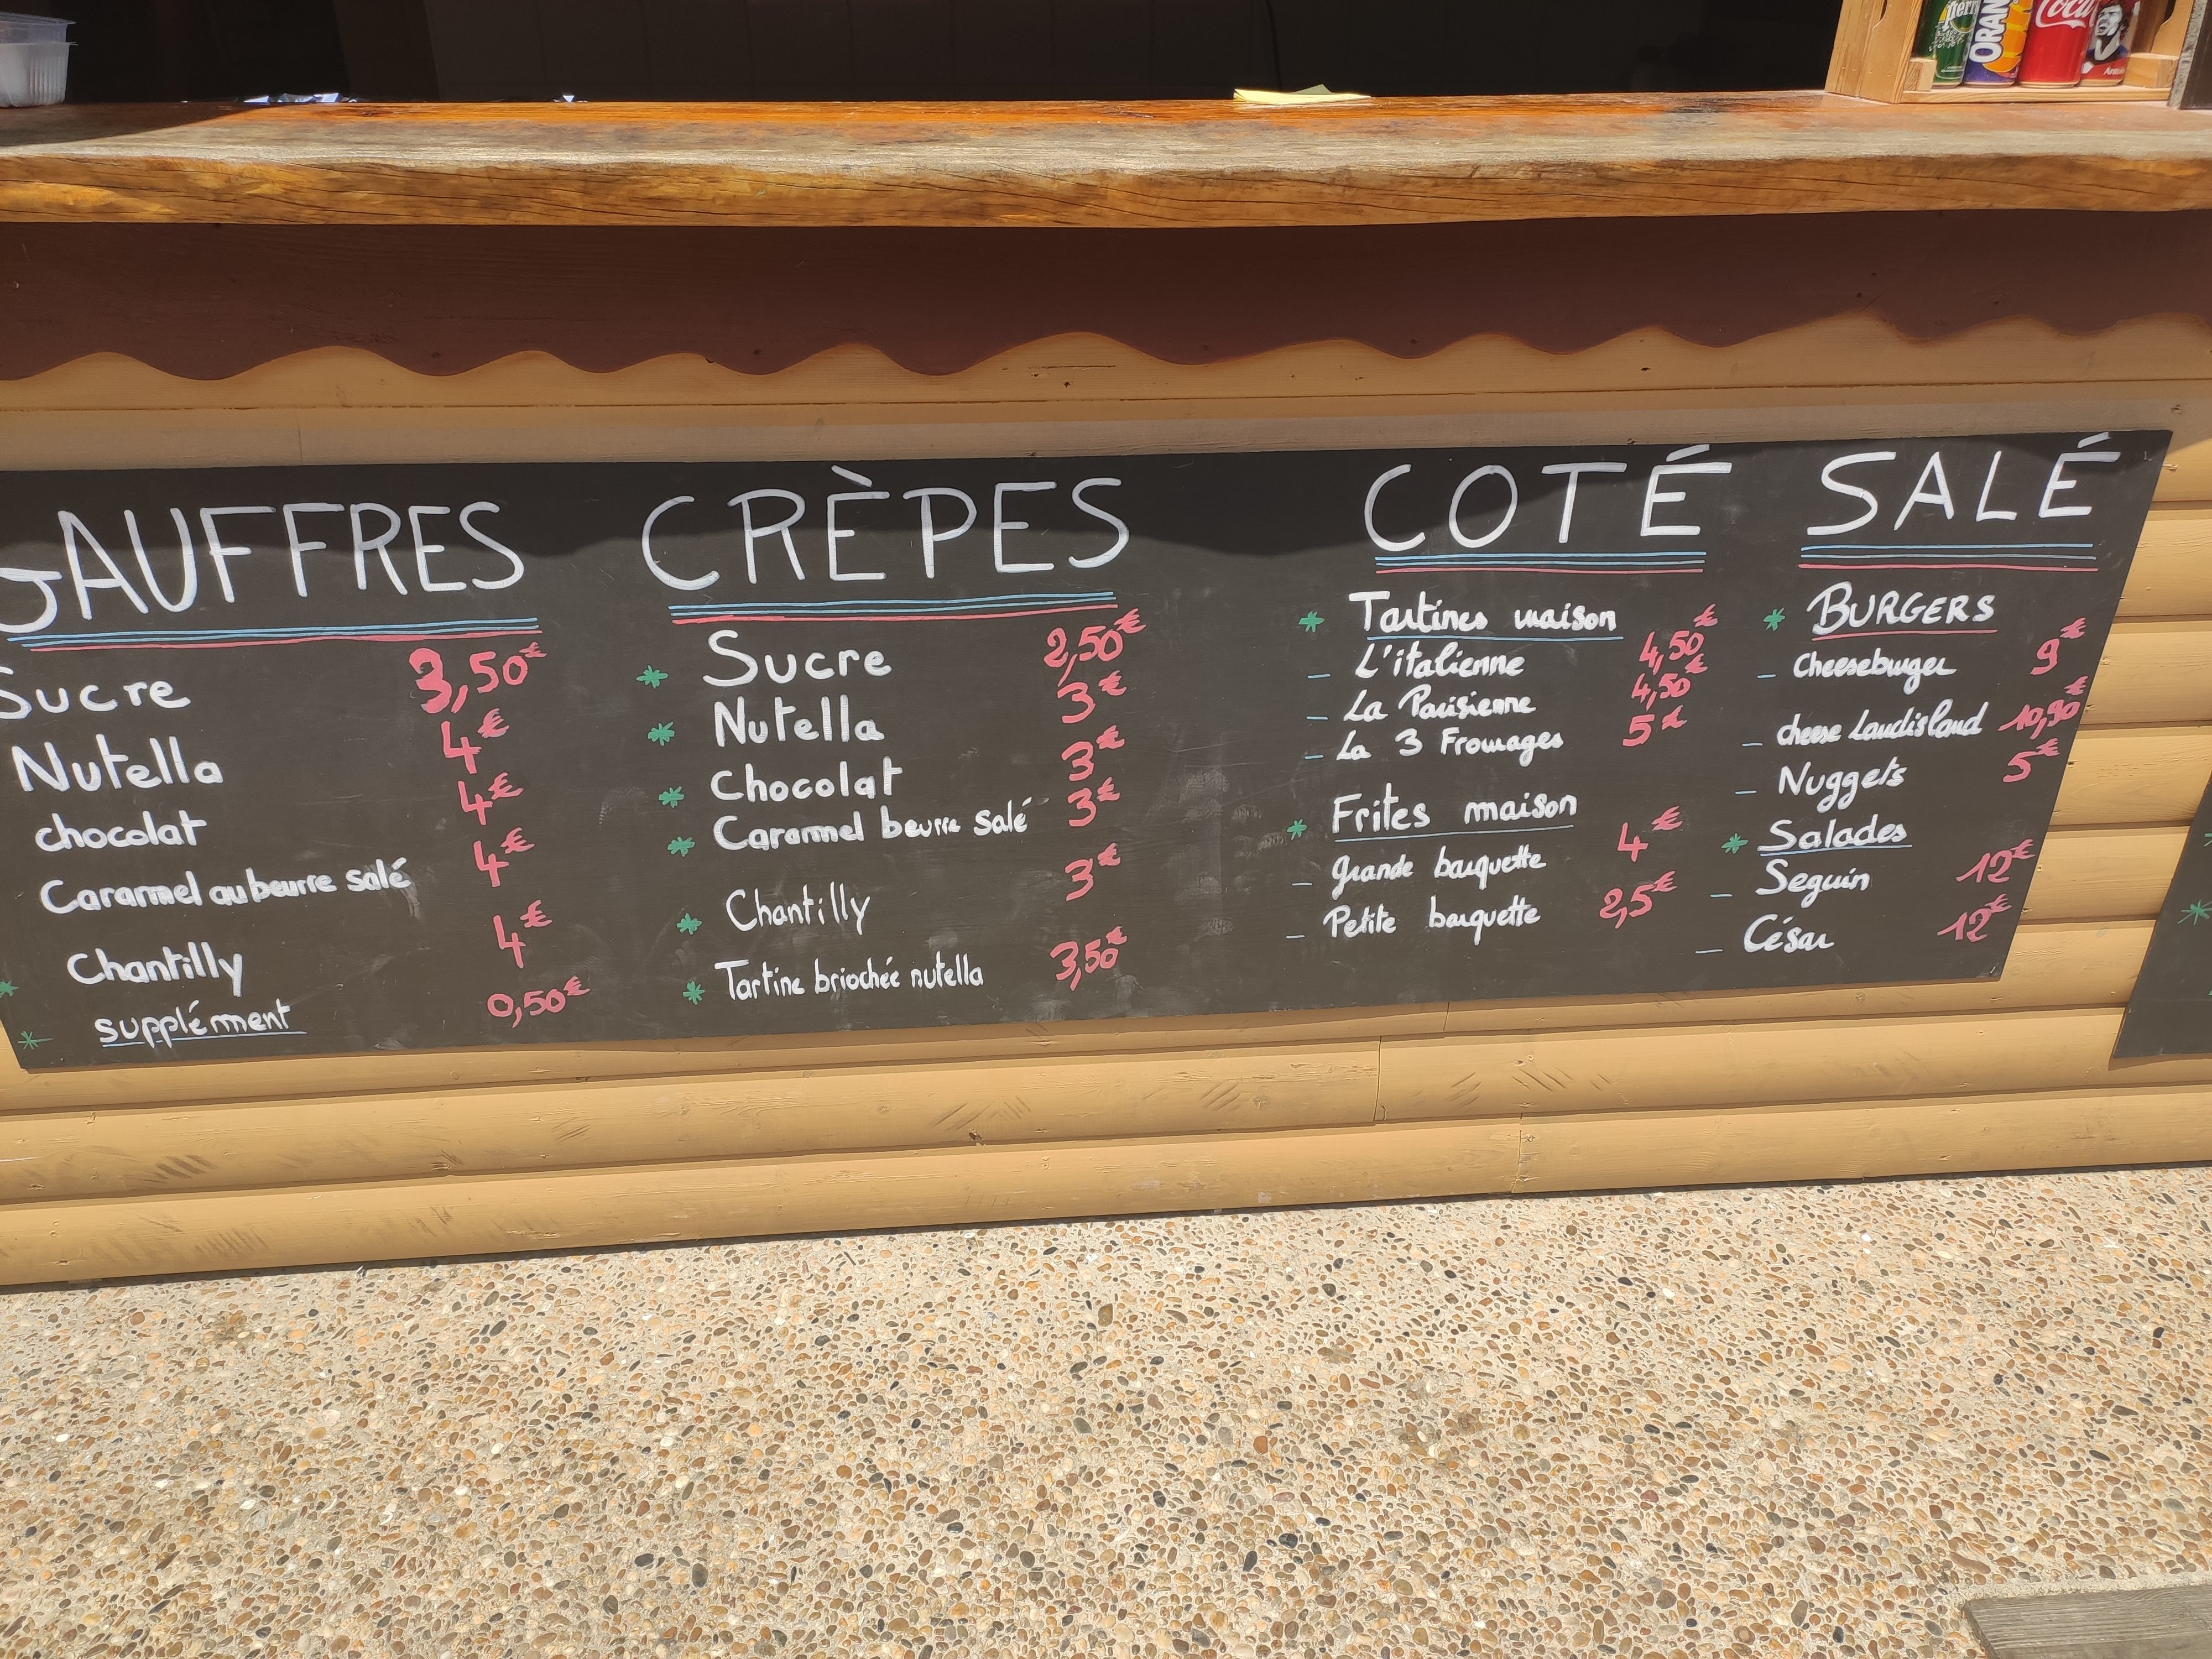 GAUFFRES
Sucre 3,50€
Nutella 4€
chocolat 4€
Caramel au beurre salé 4€
Chantilly 4€
supplément 0,50€
CRÈPES
Sucre 2,50€
Nutella 3€
chocolat 3€
Caramel beurre salé 3€
Chantilly 3€
Tartine briochée nutella 3,50€
COTÉ SALÉ
Tartines maison
_ L'italienne 4,50€
_ La Parisienne 4,50€
_ La 3 Fromages 5€
Frites maison
_ grande barquette 4€
_ Petite barquette 2,5€
BURGERS
_ Cheeseburger 9€
_ cheese Landisland 10,90€
_ Nuggets 5€
Salades
_ Seguin 12€
_ César 12€
Perri
ORAN
Coca